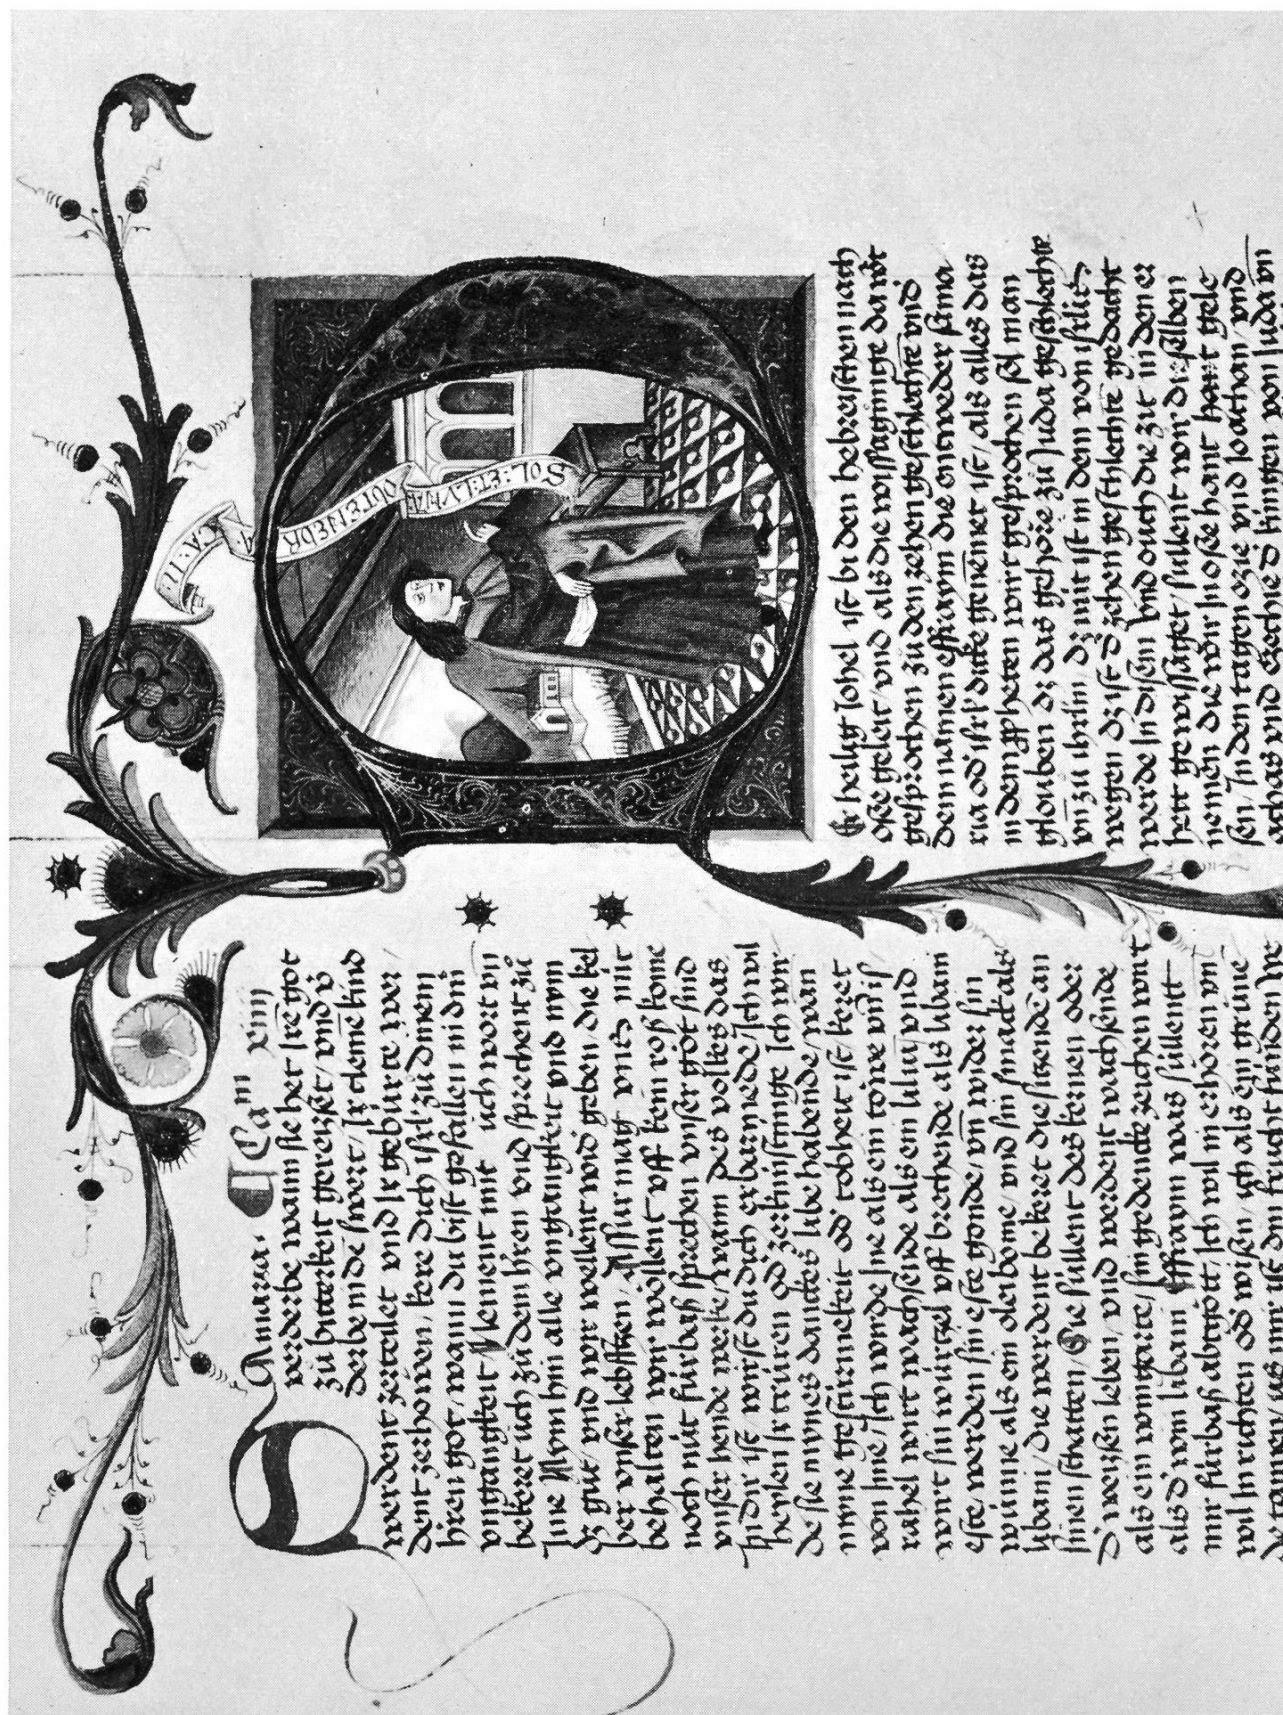 SAmaria. ¶ Cam xiiij
verderbe wann sie het Jrē got
zů bitterkeit gereisset / vnd v̓
derbe in dē swert / Jr cleinē kind
werdent zerteilet vnd Jr geburte wer
dent zerhowen / kere dich isrl' zů dinem
hren got / wann du bist gefallen in dinr
vngangkeit / Nement mit üch wort vn̄
bekeret üch zů dem hren vnd sprechent zů
Jme Nym hin alle vngangkeit vnd nym
dz gůt / vnd wir wellent wid geben die kel
ber vnser lebsen / Assur mag vns nit
behalten wir wöllent vff kein roß kome
noch nüt fürbaß sprechen vnser got sind
vnser hende werke / wann des volkes das
dir ist / wirst du dich erbarmede / Jch wil
heilen Jr trüren od̓ zerknistunge Jch wir
de sie mynes danckes libe habende / wan
mine gestürmekeit od̓ tobheit ist keret
von Jme / Jch würde Jme als ein towe vn̄ is
rahel wirt wachsende als ein liliu / vnd
wirt sin würtzel vff brechende als libani
este werden sin este gonde / vn̄ wider sin
wunne als ein oleybome / vnd sin smak als
libani / Die werdent bekeret die sitzendē an
sinen schatten / Sie süllent des kernen oder
d̓ weißen leben / vnd werdent wachsende
als ein wingarte / sin gedencke zeichen wirt
als d̓ win libani Effraym was süllent
mir fürbaß abtgött / Jch wil in erhören vn̄
wil in richten od̓ wisen / ich als ein grüne
de tanne / us mir ist din frucht funden
SOL·ET·LVNA·
OBTENEDR
A·
TA·
Er heilig Johel ist bi den hebreischen nach
osee geleit / vnd als die wissagunge da wirt
gesprochen zů den zehen geschlechte vnd
dem namen effraym die entweder sama
ria od̓ isrl' dicke genennet ist / als alles das
in dem ppheten wirt gesprochen sol man
glouben dz das gehöre zů Juda geschlechte
vn̄ zu ihrlm / dz mit ist in dem von isrl's
wegen dz ist d̓ zehen geschlecht gedacht
werde in disem vnd ouch die zit in den er
hett gewissaget / sullent wir dieselben
nemen die wir in osee hant gele
sen / Jn den tagen ozie vnd Joathan vnd
achas vnd Ezechie d̓ künigen von Juda vn̄